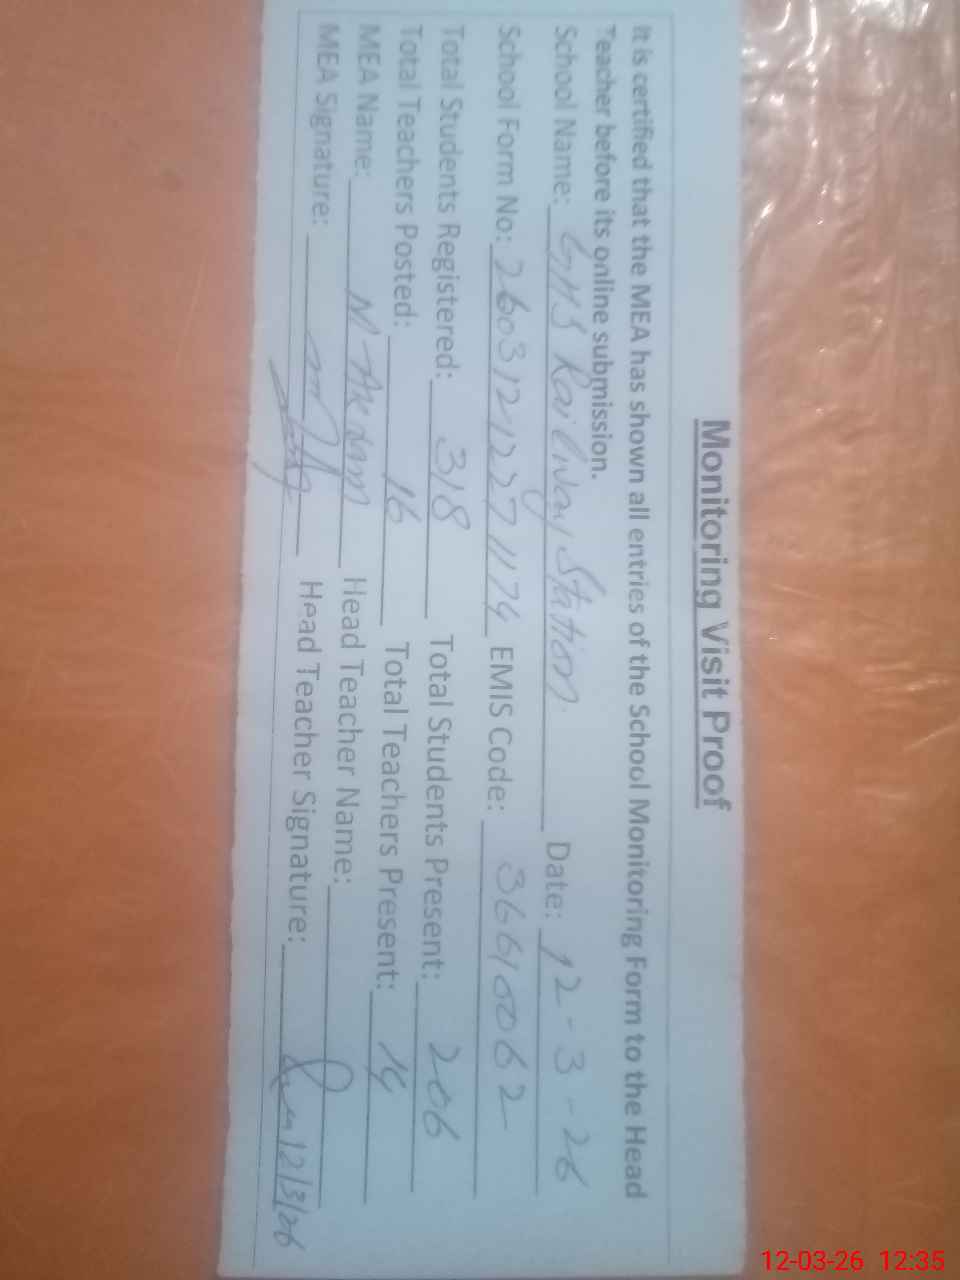 Monitoring Visit Proof
It is certified that the MEA has shown all entries of the School Monitoring Form to the Head
Teacher before its online submission.
School Name: GHS Railway Station Date: 12-3-26
School Form No: 260312122271174 EMIS Code: 36610062
Total Students Registered: 318 Total Students Present: 206
Total Teachers Posted: 16 Total Teachers Present: 14
MEA Name: M Akram Head Teacher Name:
MEA Signature: Head Teacher Signature: 12/3/26
12-03-26 12:35